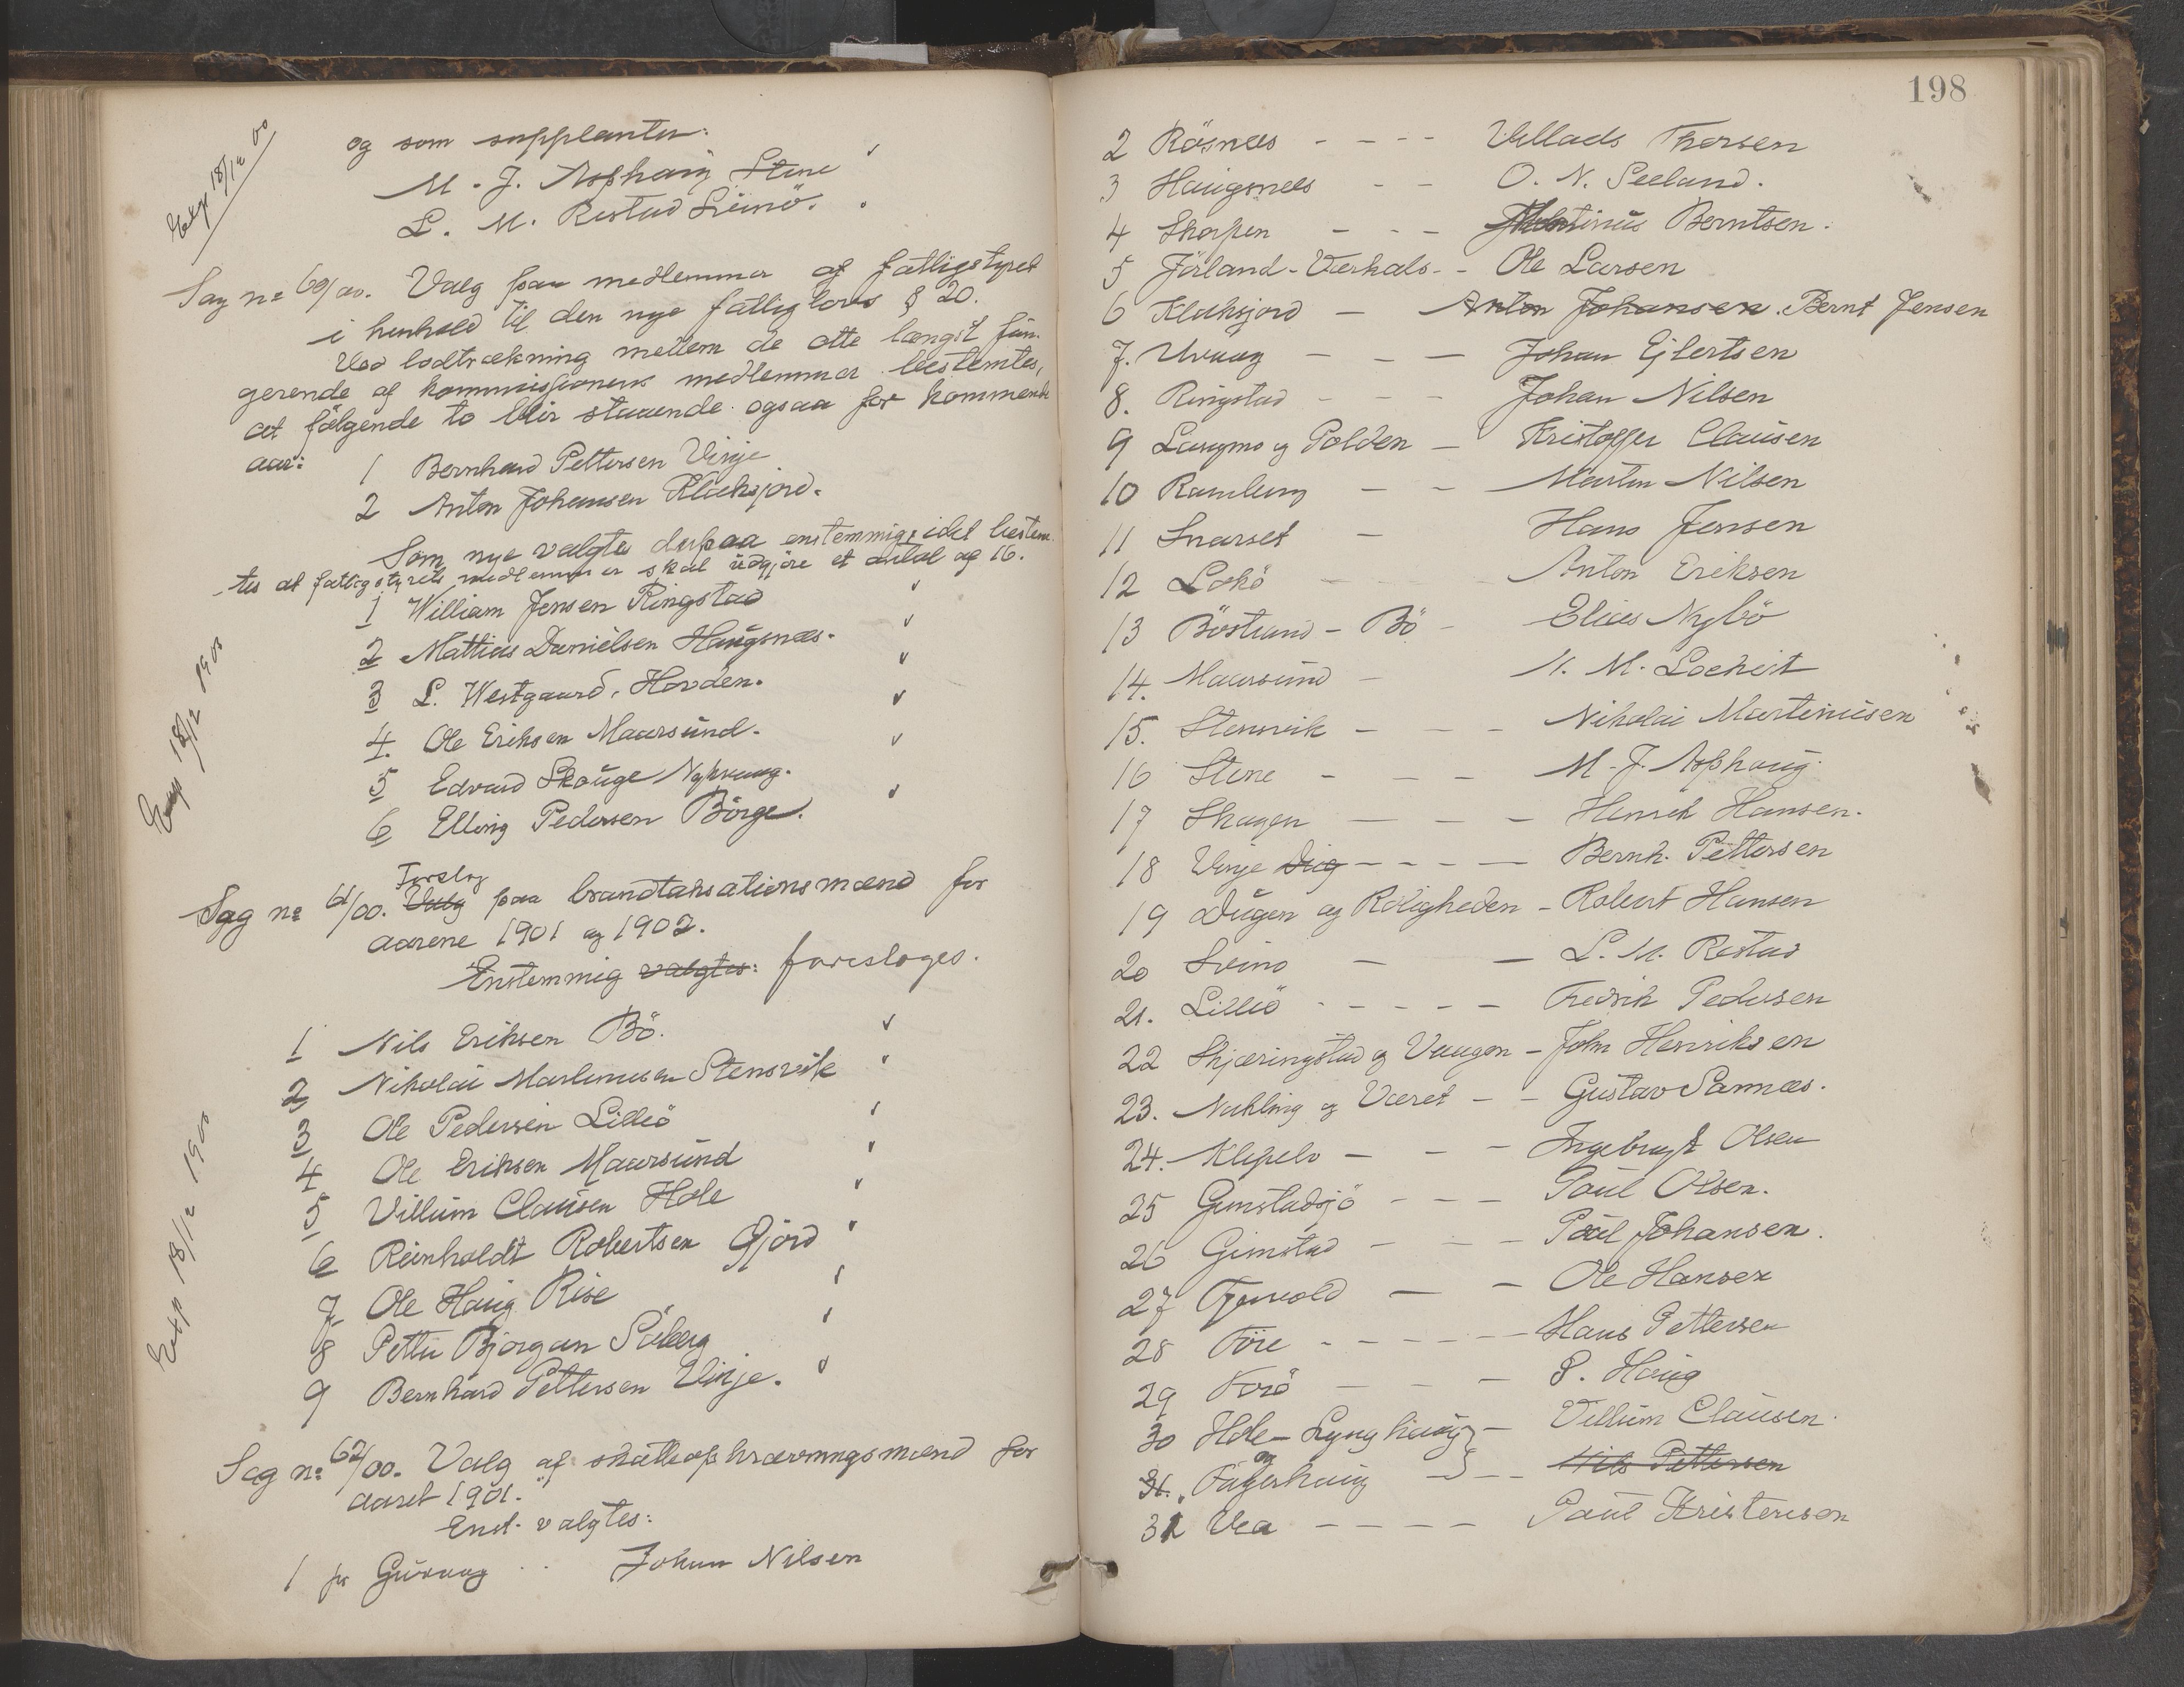 Exp 18/12 00
og som supplanter:
M. J. Asphaug Stene
L. M. Restad Svinö.
Sag no 60/00. Valg paa medlemmer af fattigstyret
i henhold til den nye fattiglovs § 20.
Ved lodtrækning mellem de otte længst fun-
gerende af kommissionens medlemmer bestemtes,
at følgende to blir staaende ogsaa for kommende
aar:
1 Bernhard Pettersen Vinje
2 Anton Johansen Klaksjord.
Som nye valgtes derpaa enstemmig, idet bestem-
tes at fattigstyrets medlemmer skal udgjøre et antal af 16.
Exp 18/12 1900
1 William Jensen Ringstad
2 Mattias Danielsen Haugsnæs.
3 L. Westgaard, Hovden.
4. Ole Eriksen Maarsund.
5 Edvard Skauge Nykvaag.
6 Elling Pedersen Börge.
Forslag
Sag no 61/00. Valg paa brandtaksationsmænd for
aarene 1901 og 1902.
Enstemmig valgtes: foresloges.
Exp 18/12 1900
1 Nils Eriksen Bö.
2 Nikolai Martinusen Stensvik
3 Ole Pedersen Lilleö
4 Ole Eriksen Maarsund
5 Villum Clausen Hole
6 Reinholdt Robertsen Gjörd
7 Ole Haug Rise
8 Petter Bjorgan Söberg
9 Bernhard Pettersen Vinje.
Sag no 62/00. Valg af skatteopkrævningsmænd for
aaret 1901.
Enst. valgtes:
1 for Guvaag .. Johan Nilsen
198
2 Rösnæs - - - - Vellads Thorsen
3 Haugsnæs - - O. N. Seeland.
4 Skorpen - - - Martinus Berntsen.
5 Jörland - Værhals - - Ole Larsen
6 Klaksjord - Anton Johansen. Bernt Jensen
7. Uvaag - - - Johan Ejlertsen
8. Ringstad - - - Johan Nilsen
9 Langmo og Polden - Kristoffer Clausen
10 Ramberg - - Martin Nilsen
11 Snarset - Hans Jensen
12 Lokö Anton Eriksen
13 Böstrand - Bö - Elias Nybö
14. Maarsund - M. Lochert
15. Stensvik - - - Nikolai Martinusen
16 Stene - - - M. J. Asphaug.
17 Skagen - - - Henrik Hansen.
18 Vinje - - - - Bernh. Pettersen
19 Augen og Roligheden - Robert Hansen
20 Svino - - L. M. Restad
21. Lilleö - - - - - Fredrik Pedersen
22 Skjæringstad og Vaagen - John Henriksen
23. Nakling og Været - - Gustav Sannæs.
24. Klepelv - - - Ingebrigt Olsen
25 Gimstadsjö - - - Paul Olsen.
26 Gimstad - - - Paul Johansen.
27 - - Ole Hansen
28 Före - - - - - Hans Pettersen
29 Forö - - - Haug
30 Hole - Lynghaug - Villum Clausen.
og
31. Fagerhaug - - - Nils Pettersen
31 Vea - - - - Paul Kristensen